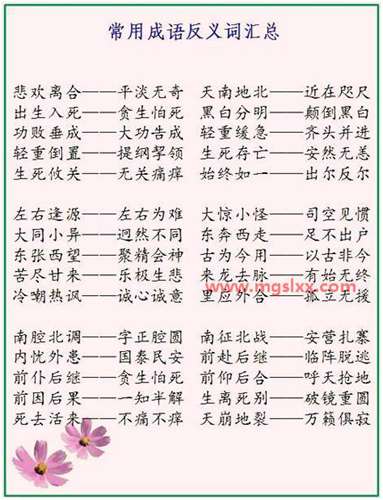 常用成语反义词汇总
悲欢离合——平淡无奇 天南地北——近在咫尺
出生入死——贪生怕死 黑白分明——颠倒黑白
功败垂成——大功告成 轻重缓急——齐头并进
轻重倒置——提纲挈领 生死存亡——安然无恙
生死攸关——无关痛痒 始终如一——出尔反尔
左右逢源——左右为难 大惊小怪——司空见惯
大同小异——迥然不同 东奔西走——足不出户
东张西望——聚精会神 古为今用——以古非今
苦尽甘来——乐极生悲 来龙去脉——有始无终
www.mgslxx.com
冷嘲热讽——诚心诚意 里应外合——孤立无援
南腔北调——字正腔圆 南征北战——安营扎寨
内忧外患——国泰民安 前赴后继——临阵脱逃
前仆后继——贪生怕死 前仰后合——呼天抢地
前因后果——一知半解 生离死别——破镜重圆
死去活来——不痛不痒 天崩地裂——万籁俱寂